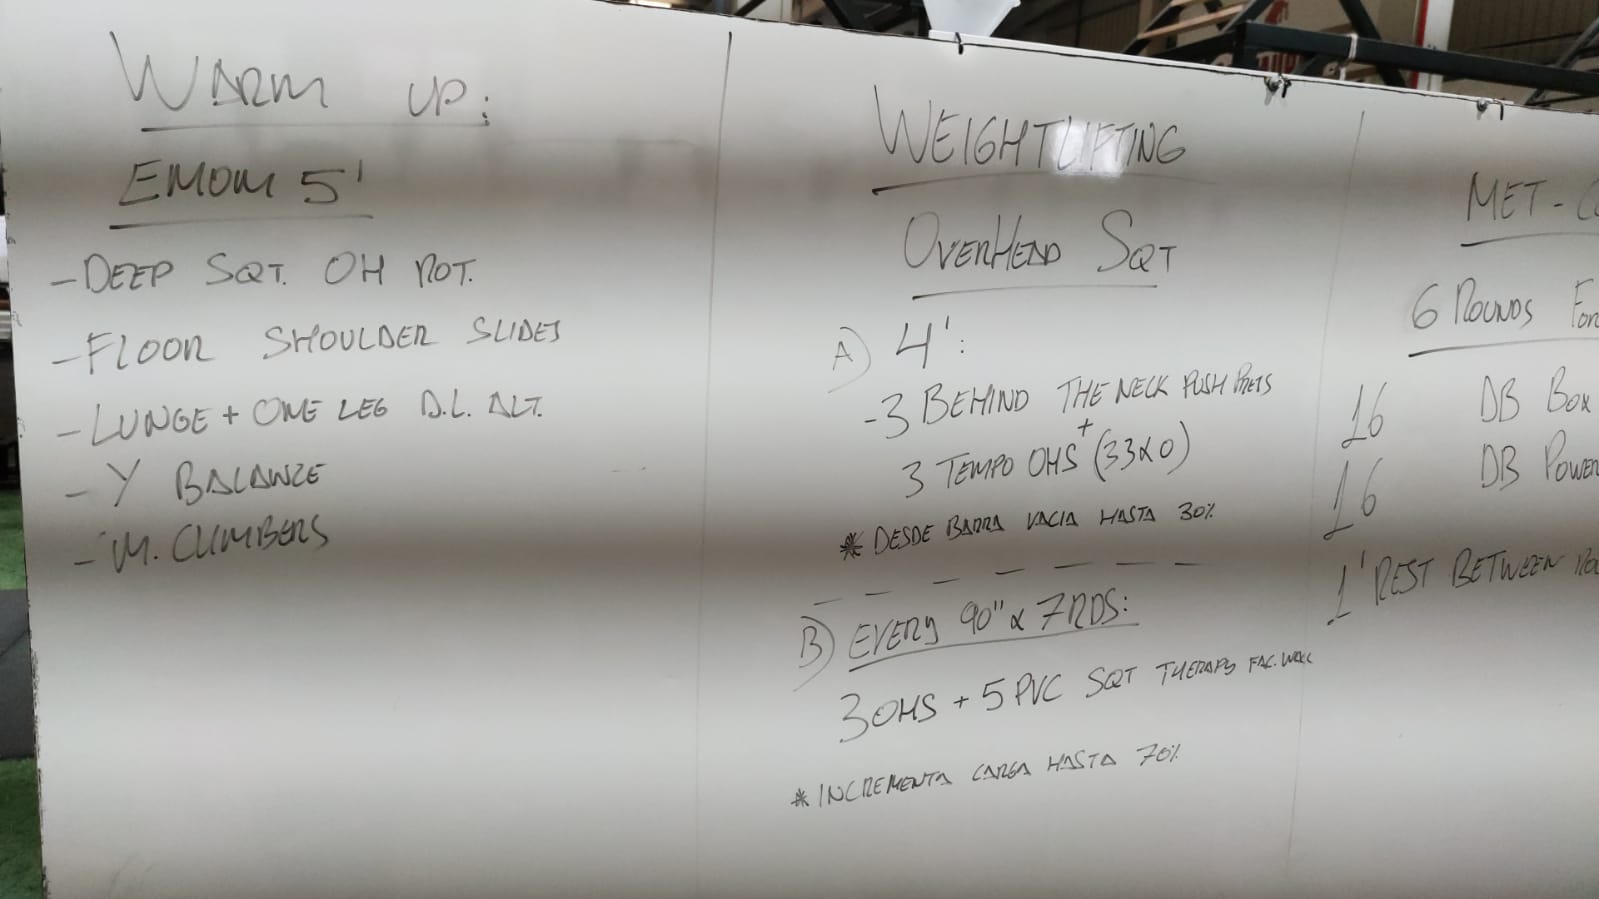 WARM UP:
EMOM 5'
- DEEP SQT. OH ROT.
- FLOOR SHOULDER SLIDES
- LUNGE + ONE LEG D.L. ALT.
- Y BALANZE
- M. CLIMBERS
WEIGHTLIFTING
OVERHEAD SQT
A) 4':
- 3 BEHIND THE NECK PUSH PRESS
+
3 TEMPO OHS (33X0)
* DESDE BARRA VACIA HASTA 30%
B) EVERY 90" x 7 RDS:
3 OHS + 5 PVC SQT THERAPY FAC. WALL
* INCREMENTA CARGA HASTA 70%
MET-C
6 ROUNDS FOR
16 DB BOX
16 DB POWER
1' REST BETWEEN